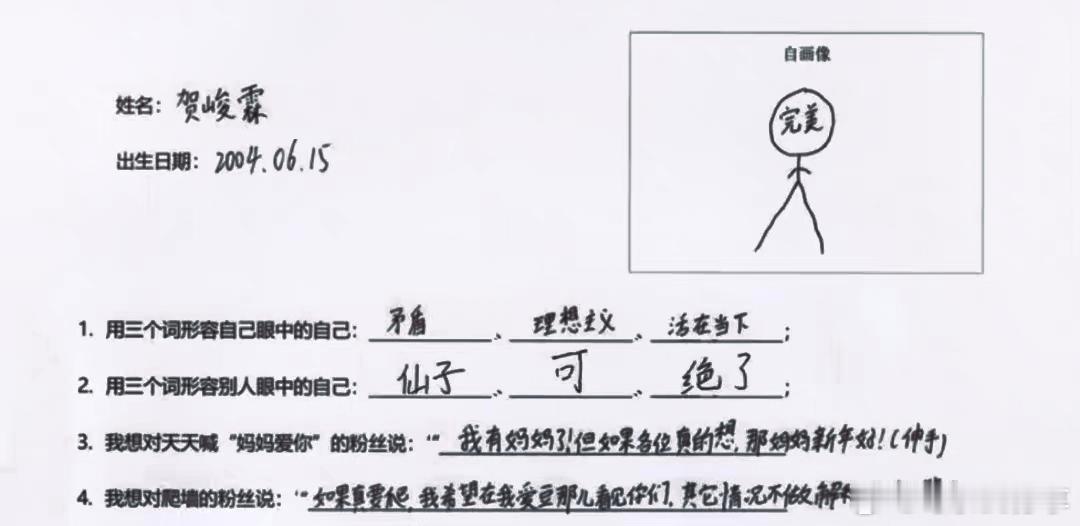 自画像
完美
姓名：贺峻霖
出生日期：2004.06.15
1. 用三个词形容自己眼中的自己：矛盾、理想主义、活在当下；
2. 用三个词形容别人眼中的自己：仙子、可、绝了；
3. 我想对天天喊“妈妈爱你”的粉丝说：“我有妈妈了！但如果各位真的想，那妈妈新年好！（伸手）
4. 我想对爬墙的粉丝说：“如果真要爬，我希望在我爱豆那儿看见你们，其它情况不做解